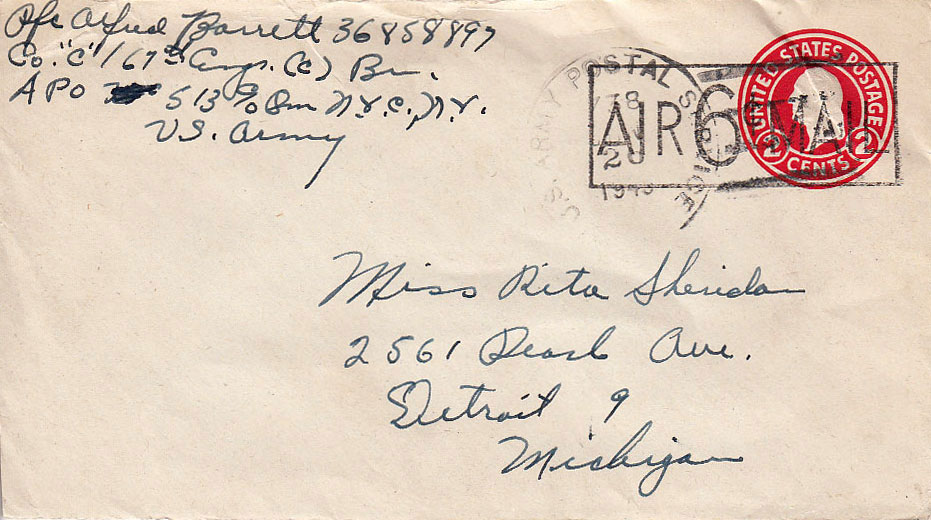 Pfc Alfred Barrett 36858897
Co. "C" 167th Engr. (C) Bn.
APO 513 % Pm N.Y.C., N.Y.
U.S. Army
POSTAL SERVICE
20
194
AIR 6¢ MAIL
UNITED STATES POSTAGE
2 CENTS 2
Miss Rita Sheridan
2561 Pearl Ave.
Detroit 9
Michigan